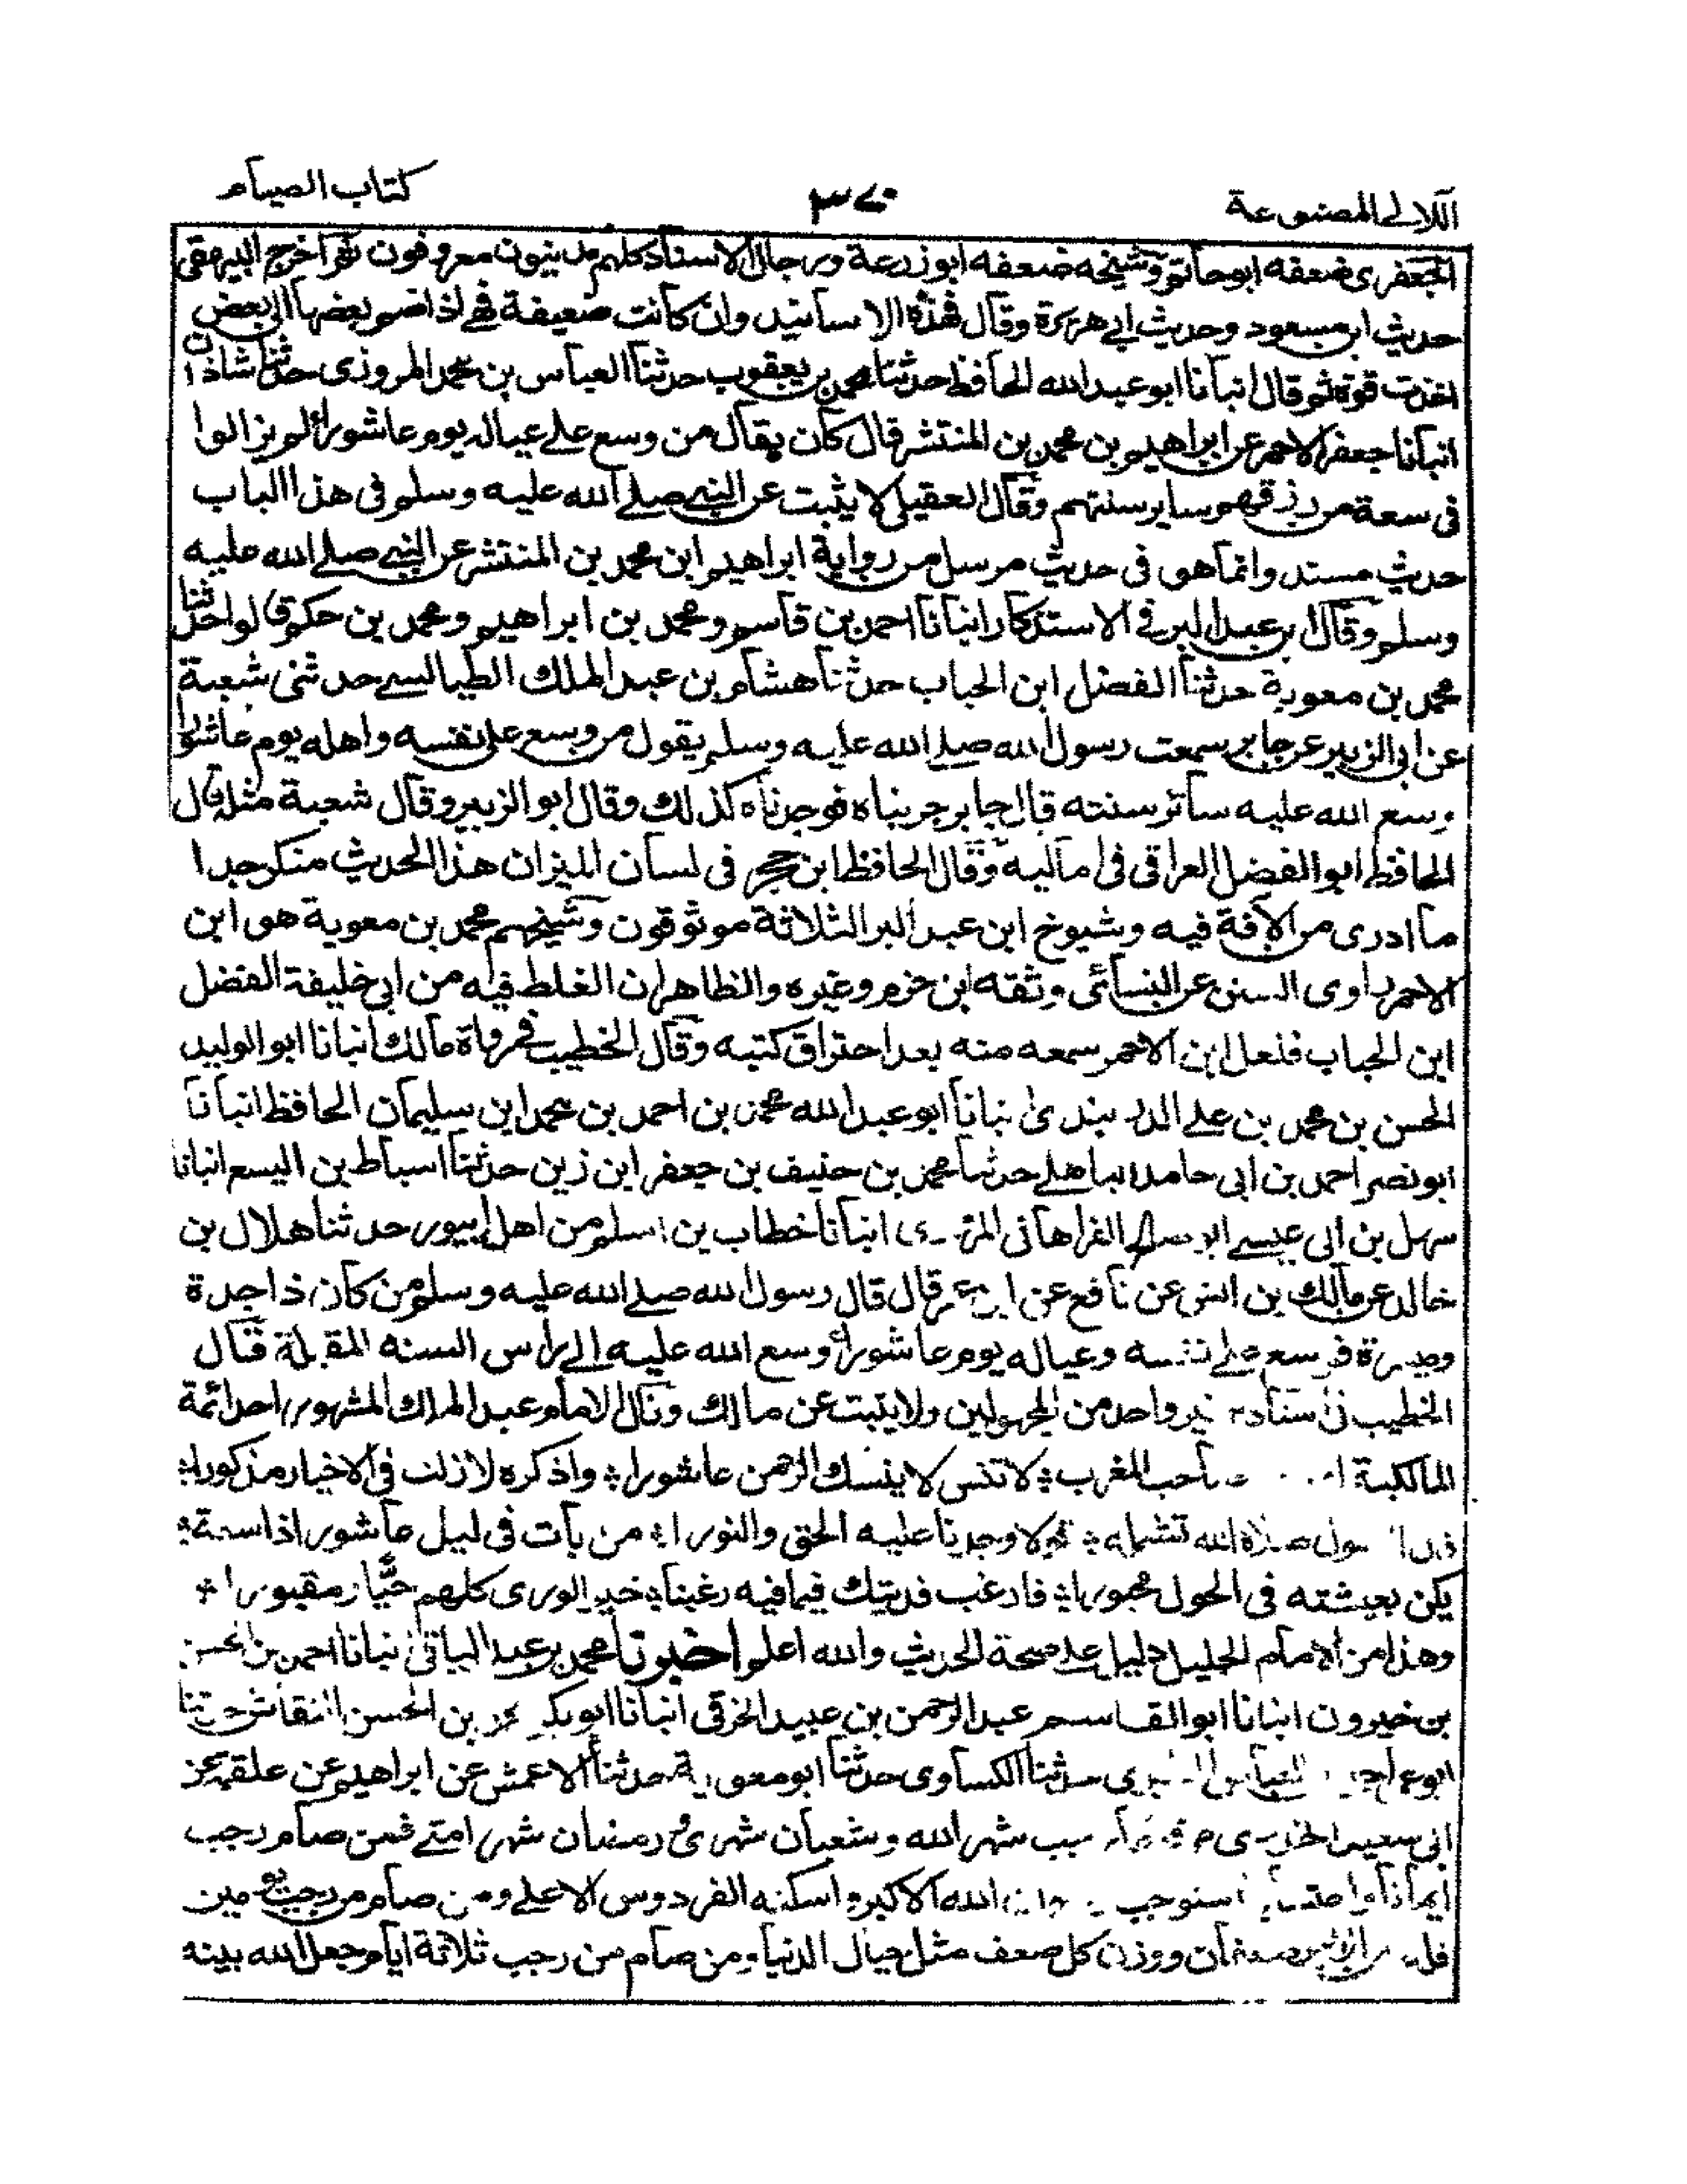 اللآلي المصنوعة
٣٧٠
كتاب الصيام
الجعفرى ضعفه ابو حاتم وشيخه ضعفه ابو زرعة ورجال الاسناد كلهم مدينيون معروفون ثم اخرج البيهقى
حديث ابن مسعود وحديث ابي هريرة وقال فهذه الاسانيد وان كانت ضعيفة فهي اذا ضم بعضها الى بعض
اخذت قوة ثم قال انبأنا ابو عبد الله الحافظ حدثنا محمد بن يعقوب حدثنا العباس بن محمد المروزى حدثنا شاذان
انبأنا جعفر الاحمر عن ابراهيم بن محمد بن المنتشر قال كان يقال من وسع على عياله يوم عاشوراء لم يزالوا
فى سعة من رزقهم ساير سنتهم وقال العقيلى لا يثبت عن النبي صلى الله عليه وسلم فى هذا الباب
حديث مسند وانما هو فى حديث مرسل من رواية ابراهيم ابن محمد بن المنتشر عن النبي صلى الله عليه
وسلم وقال ابن عبد البر في الاستذكار انبأنا احمد بن قاسم ومحمد بن ابراهيم ومحمد بن حكم قالوا حدثنا
محمد بن معوية حدثنا الفضل ابن الحباب حدثنا هشام بن عبد الملك الطيالسي حدثنى شعبة
عن ابى الزبير عن جابر سمعت رسول الله صلى الله عليه وسلم يقول من وسع على نفسه واهله يوم عاشوراء
وسع الله عليه سائر سنته قال جابر جربناه فوجدناه كذلك وقال ابو الزبير وقال شعبة مثله قال
الحافظ ابو الفضل العراقى فى اماليه وقال الحافظ ابن حجر فى لسان الميزان هذا الحديث منكر جدا
ما ادرى من الآفة فيه وشيوخ ابن عبد البر الثلاثة موثوقون وشيخهم محمد بن معوية هو ابن
الاحمر راوى السنن عن النسائى وثقه ابن حزم وغيره والظاهر ان الغلط فيه من ابى خليفة الفضل
ابن الحباب فلعل ابن الاحمر سمعه منه بعد احتراق كتبه وقال الخطيب في رواة مالك انبانا ابو الوليد
الحسن بن محمد بن على الدربندى انبانا ابو عبد الله محمد بن احمد بن محمد ابن سليمان الحافظ انبأنا
ابو نصر احمد بن ابى حامد الباهلى حدثنا محمد بن حنيف بن جعفر ابن زين حدثنا اسباط بن اليسع انبانا
سهل بن ابى عيسى ابو صالح الفراهانى المرزى انبأنا خطاب بن اسلم من اهل ابيورد حدثنا هلال بن
خالد عن مالك بن انس عن نافع عن ابن عمر قال قال رسول الله صلى الله عليه وسلم من كان ذا جدة
وميسرة فوسع على نفسه وعياله يوم عاشوراء وسع الله عليه الى رأس السنه المقبلة قال
الخطيب فى اسناده غير واحد من المجهولين ولا يثبت عن مالك وقال الامام عبد الملك المشهور احد ائمة
المالكية صاحب المغرب لا تنس لا ينسك الرحمن عاشورا واذكره لا زلت فى الاخبار مذكورا
قول الرسول صلاة الله تشمله قولا وجدنا عليه الحق والنورا من بات فى ليل عاشورا ذا سعة
يكن بعيشته فى الحول مجبورا فارغب فديتك فيما فيه رغبنا خير الورى كلهم حيا ومقبورا
وهذا من الامام الجليل دليل على صحة الحديث والله اعلم اخبرنا محمد بن عبد الباقى انبانا احمد بن الحسن
بن خيرون انبانا ابو القاسم عبد الرحمن بن عبيد الخرقى انبأنا ابو بكر محمد بن الحسن النقاش حدثنا
ابو عمرو احمد بن العباس الطبرى حدثنا الكساوى حدثنا ابو معوية حدثنا الاعمش عن ابراهيم عن علقمة عن
ابى سعيد الخدرى مرفوعا رجب شهر الله وشعبان شهرى ورمضان شهر امتي فمن صام رجب
ايمانا واحتسابا استوجب رضوان الله الاكبر واسكنه الفردوس الاعلى ومن صام من رجب يومين
فله من الاجر ضعفان ووزن كل ضعف مثل جبال الدنيا ومن صام من رجب ثلاثة ايام جعل الله بينه